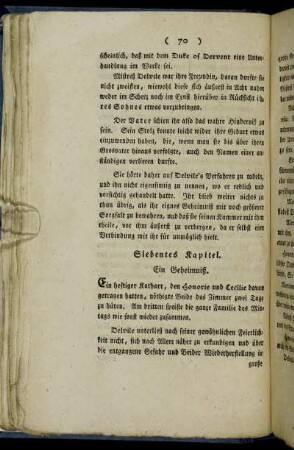 ( 70 )
scheinlich, daß mit dem Duke of Derwent eine Unter-
handlung im Werke sei.
Mistreß Delvile war ihre Freundin, daran durfte sie
nicht zweifeln, wiewohl diese sich äußerst in Acht nahm
weder im Scherz noch im Ernst hierüber in Rücksicht ih-
res Sohnes etwas vorzubringen.
Der Vater schien ihr also das wahre Hinderniß zu
sein. Sein Stolz konnte leicht wider ihre Geburt etwas
einzuwenden haben, die, was man auch bis über ihren
Grosvater hinaus verfolgte, auch den Namen einer an-
ständigen verlieren durfte.
Sie hörte daher auf Delvile's Verfahren zu tadeln,
und ihn nicht eigensinnig zu nennen, wo er redlich und
vorsichtig gehandelt hatte. Ihr blieb weiter nichts zu
thun übrig, als ihr eignes Geheimniß mit noch größrer
Sorgfalt zu bewahren, und daß sie seinen Kummer mit ihm
theile, vor ihm äußerst zu verbergen, da er selbst eine
Verbindung mit ihr für unmöglich hielt.
Siebentes Kapitel.
Ein Geheimniß.
Ein heftiger Katharr, den Honorie und Cecilie davon
getragen hatten, nöthigte Beide das Zimmer zwei Tage
zu hüten. Am dritten speißte die ganze Familie des Mit-
tags wie sonst wieder zusammen.
Delvile unterließ nach seiner gewöhnlichen Feierlich-
keit nicht, sich nach Allem näher zu erkundigen und über
die entgangene Gefahr und Beider Wiederherstellung in
große